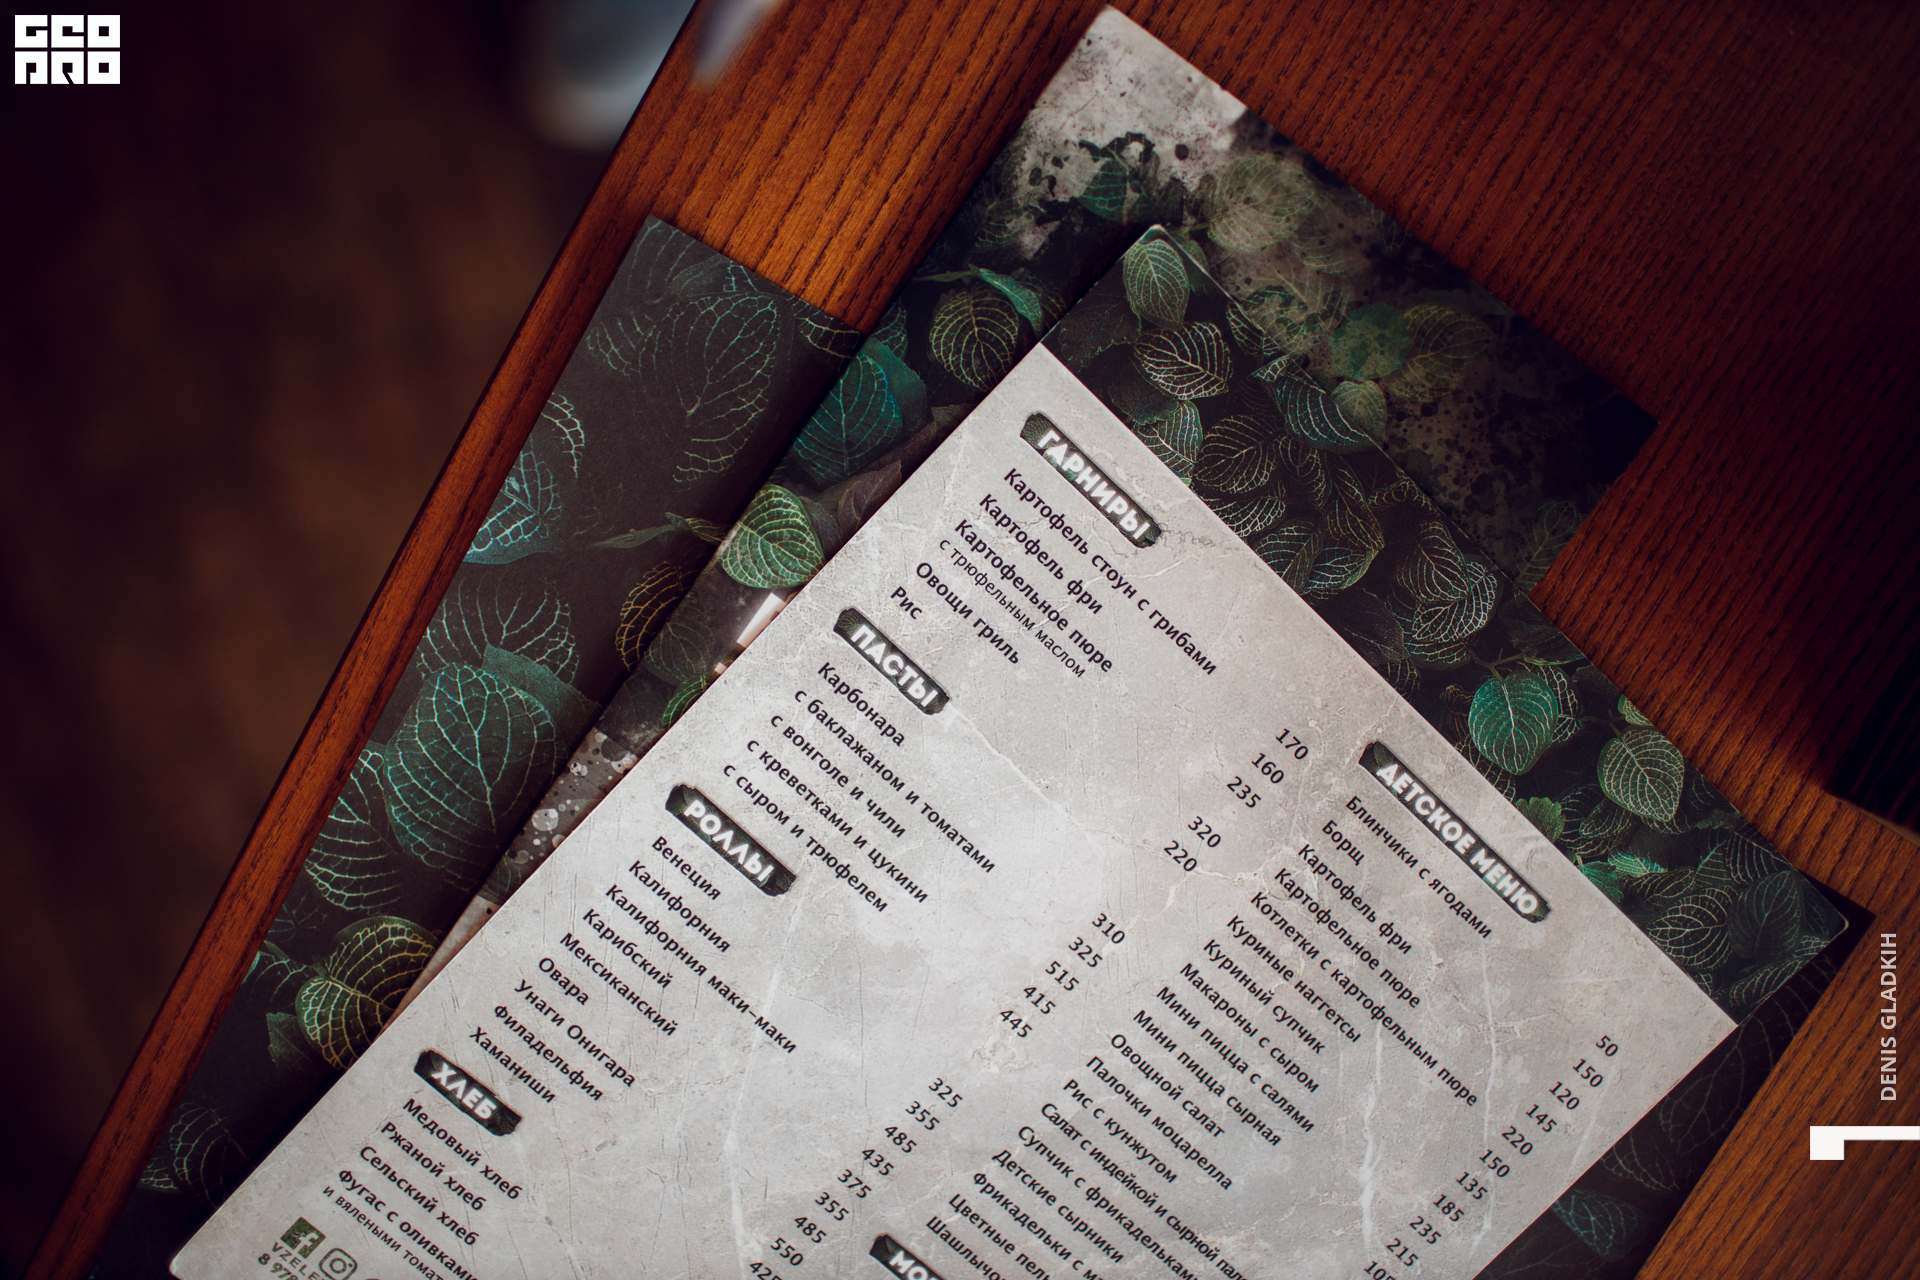 GEO
PRO
ГАРНИРЫ
Картофель стоун с грибами 170
Картофель фри 160
Картофельное пюре 235
с трюфельным маслом
Овощи гриль 320
Рис 220
ПАСТЫ
Карбонара 310
с баклажаном и томатами 325
с вонголе и чили 515
с креветками и цукини 415
с сыром и трюфелем 445
РОЛЛЫ
Венеция 325
Калифорния 355
Калифорния маки-маки 485
Карибский 435
Мексиканский 375
Овара 355
Унаги Онигара 485
Филадельфия 550
Хаманиши 425
ХЛЕБ
Медовый хлеб
Ржаной хлеб
Сельский хлеб
Фугас с оливками
и вялеными
ДЕТСКОЕ МЕНЮ
Блинчики с ягодами 50
Борщ 150
Картофель фри 120
Картофельное пюре 145
Котлетки с картофельным пюре 220
Куриные наггетсы 150
Куриный супчик 135
Макароны с сыром 185
Мини пицца с салями 235
Мини пицца сырная 215
Овощной салат 105
Палочки моцарелла
Рис с кунжутом
Салат с индейкой и сырной
Супчик с фрикадельками
Детские сырники
Фрикадельки с
Цветные
DENIS GLADKIH